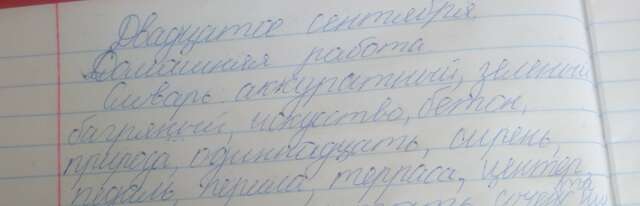 Двадцатое сентября.
Домашняя работа
Словарь: аккуратный, зеленый
багряный, искусство, бетон,
природа, одиннадцать, сирень,
перила, терраса, центер